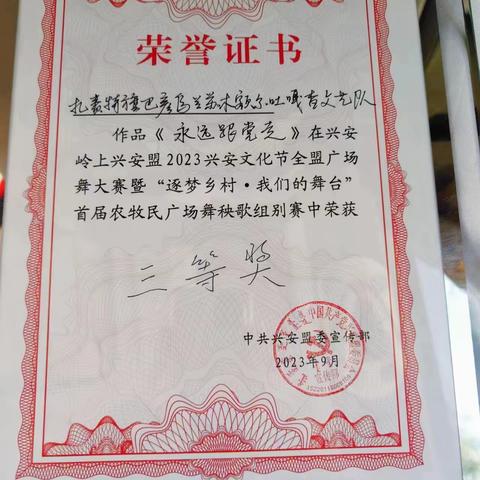 荣誉证书
扎赉特旗巴彦乌兰苏木额尔吐嘎查文艺队
作品《永远跟党走》在兴安
岭上兴安盟2023兴安文化节全盟广场
舞大赛暨“逐梦乡村·我们的舞台”
首届农牧民广场舞秧歌组别赛中荣获
三等奖
中共兴安盟委宣传部
2023年9月
宣传部